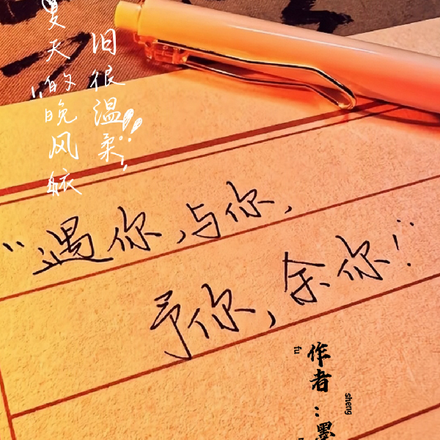 “夏天的晚风依
旧很温柔!!”
“遇你,与你,
予你,余你!”
作者:墨
fu
sheng